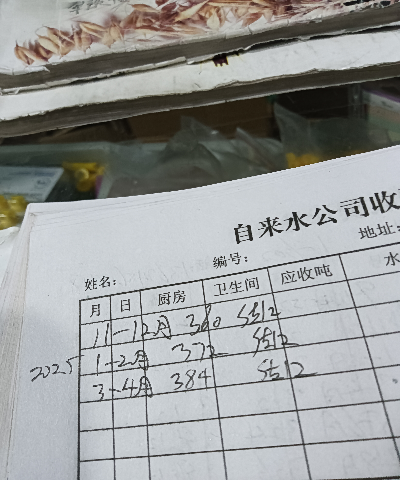 自来水公司收
姓名: 编号: 地址:
月 日 厨房 卫生间 应收吨 水
11-12月 360 结12
2025 1-2月 372 结12
3-4月 384 结12